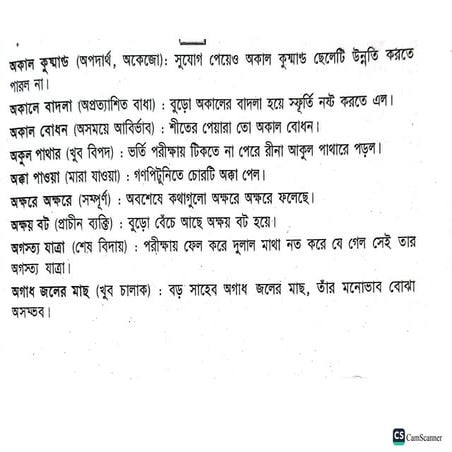 অকাল কুষ্মাণ্ড (অপদার্থ, অকেজো): সুযোগ পেয়েও অকাল কুষ্মাণ্ড ছেলেটি উন্নতি করতে
পারল না।
অকালে বাদলা (অপ্রত্যাশিত বাধা) : বুড়ো অকালের বাদলা হয়ে স্ফূর্তি নষ্ট করতে এল।
অকাল বোধন (অসময়ে আবির্ভাব) : শীতের পেয়ারা তো অকাল বোধন।
অকুল পাথার (খুব বিপদ) : ভর্তি পরীক্ষায় টিকতে না পেরে রীনা আকুল পাথারে পড়ল।
অক্কা পাওয়া (মারা যাওয়া) : গণপিটুনিতে চোরটি অক্কা পেল।
অক্ষরে অক্ষরে (সম্পূর্ণ) : অবশেষে কথাগুলো অক্ষরে অক্ষরে ফলেছে।
অক্ষয় বট (প্রাচীন ব্যক্তি) : বুড়ো বেঁচে আছে অক্ষয় বট হয়ে।
অগস্ত্য যাত্রা (শেষ বিদায়) : পরীক্ষায় ফেল করে দুলাল মাথা নত করে যে গেল সেই তার
অগস্ত্য যাত্রা।
অগাধ জলের মাছ (খুব চালাক) : বড় সাহেব অগাধ জলের মাছ, তাঁর মনোভাব বোঝা
অসম্ভব।
CS CamScanner